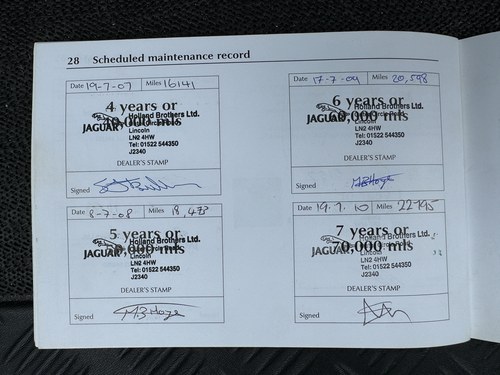 28 Scheduled maintenance record
Date 19-7-07 Miles 16141
4 years or
Holland Brothers Ltd.
JAGUAR
Lincoln
LN2 4HW
Tel: 01522 544350
J2340
DEALER'S STAMP
Signed
Date 8-7-08 Miles 18,473
5 years or
Holland Brothers Ltd.
JAGUAR
Lincoln
LN2 4HW
Tel: 01522 544350
J2340
DEALER'S STAMP
Signed M.B Hoge
Date 17-7-09 Miles 20,598
6 years or
Holland Brothers Ltd.
JAGUAR 60,000 mls
Lincoln
LN2 4HW
Tel: 01522 544350
J2340
DEALER'S STAMP
Signed
Date 19.7.10 Miles 22795
7 years or
Holland Brothers Ltd.
JAGUAR 70,000 mls
LN2 4HW
Tel: 01522 544350
J2340
DEALER'S STAMP
Signed